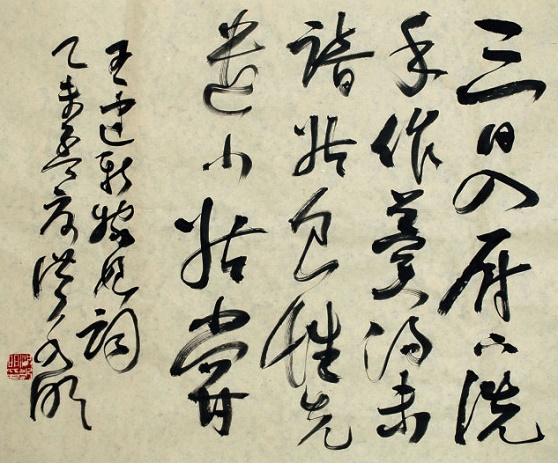 三日入厨下洗
手作羹湯未
諳姑食性先
遣小姑嘗
王建新嫁娘詞
乙未